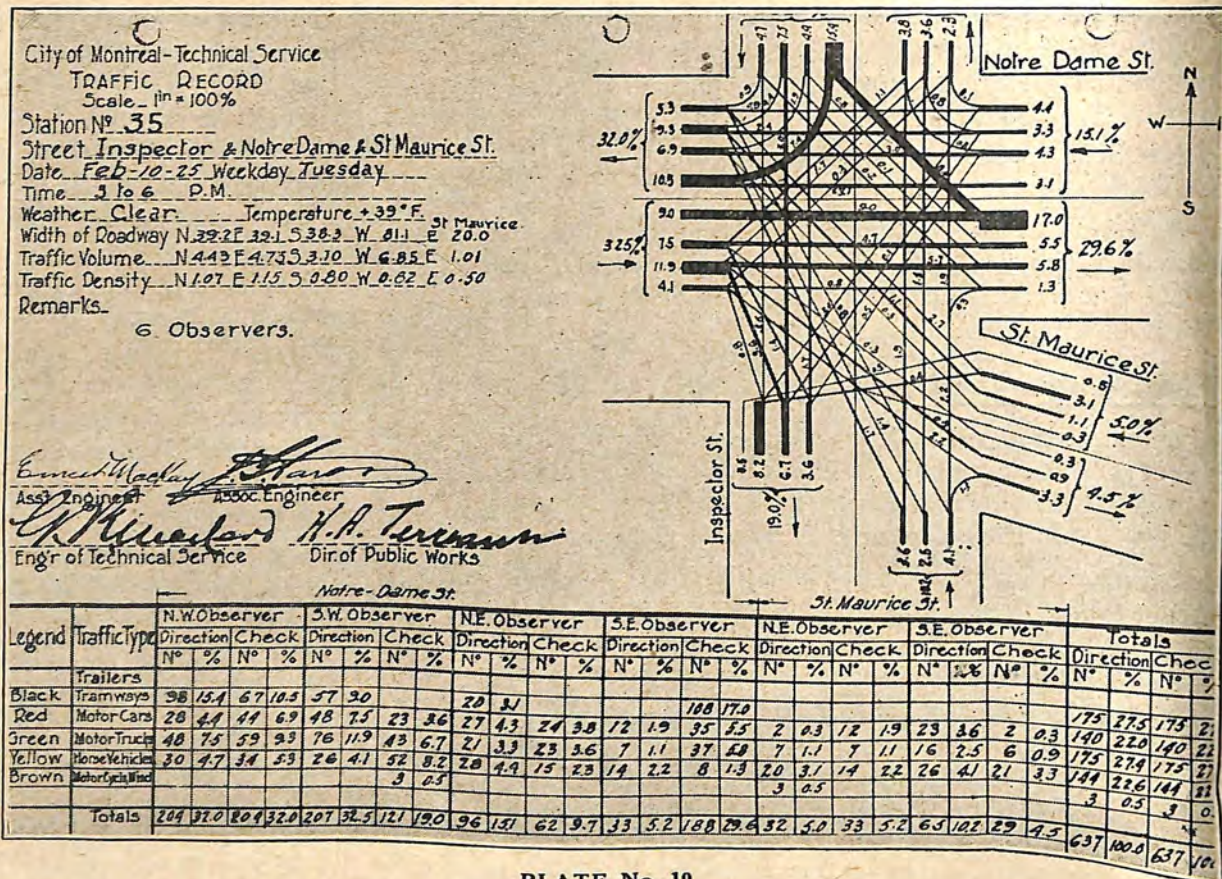 City of Montreal-Technical Service
TRAFFIC RECORD
Scale_ 1in = 100%
Station No 35
Street Inspector & Notre Dame & St Maurice St.
Date Feb-10-25 Weekday Tuesday
Time 5 to 6 P.M.
Weather Clear. Temperature +39°F.
St Maurice
Width of Roadway N 39.2 E 39.1 S 38.3 W 81.1 E 20.0
Traffic Volume N 4.43 E 4.73 S 3.10 W 6.85 E 1.01
Traffic Density N 1.07 E 1.15 S 0.80 W 0.82 E 0.50
Remarks_
6 Observers.
Asst Engineer Assoc. Engineer
Eng'r of Technical Service Dir. of Public Works
4.7 7.5 4.4 15.4 3.8 3.6 2.3
Notre Dame St.
N
W
S
5.3
9.3
6.9
10.5
32.0%
4.4
3.3
4.3
3.1
15.1%
9.0
7.5
11.9
4.1
32.5%
17.0
5.5
5.8
1.3
29.6%
St. Maurice St.
0.5
3.1
1.1
0.3
5.0%
0.3
0.9
3.3
4.5%
Inspector St.
0.5 8.2 6.7 3.6
19.0%
3.6 2.5 4.1
10.2
Notre-Dame St. St. Maurice St.
Legend Traffic Type N.W. Observer S.W. Observer N.E. Observer S.E. Observer N.E. Observer S.E. Observer Totals
Direction Check Direction Check Direction Check Direction Check Direction Check Direction Check Direction Chec
No % No % No % No % No % No % No % No % No % No % No % No % No % No %
Trailers
Black Tramways 98 15.4 67 10.5 57 9.0 20 3.1 108 17.0 175 27.5 175 27
Red Motor Cars 28 4.4 44 6.9 48 7.5 23 3.6 27 4.3 24 3.8 12 1.9 35 5.5 2 0.3 12 1.9 23 3.6 2 0.3 140 22.0 140 22
Green Motor Trucks 48 7.5 59 9.3 76 11.9 43 6.7 21 3.3 23 3.6 7 1.1 37 5.8 7 1.1 7 1.1 16 2.5 6 0.9 175 27.4 175 27
Yellow Horse Vehicles 30 4.7 34 5.3 26 4.1 52 8.2 28 4.4 15 2.3 14 2.2 8 1.3 20 3.1 14 2.2 26 4.1 21 3.3 144 22.6 144 22
Brown 3 0.5 3 0.5 3 0.5 3 0.
Totals 204 32.0 204 32.0 207 32.5 121 19.0 96 15.1 62 9.7 33 5.2 188 29.6 32 5.0 33 5.2 65 10.2 29 4.5 637 100.0 637 100
PLATE No. 19